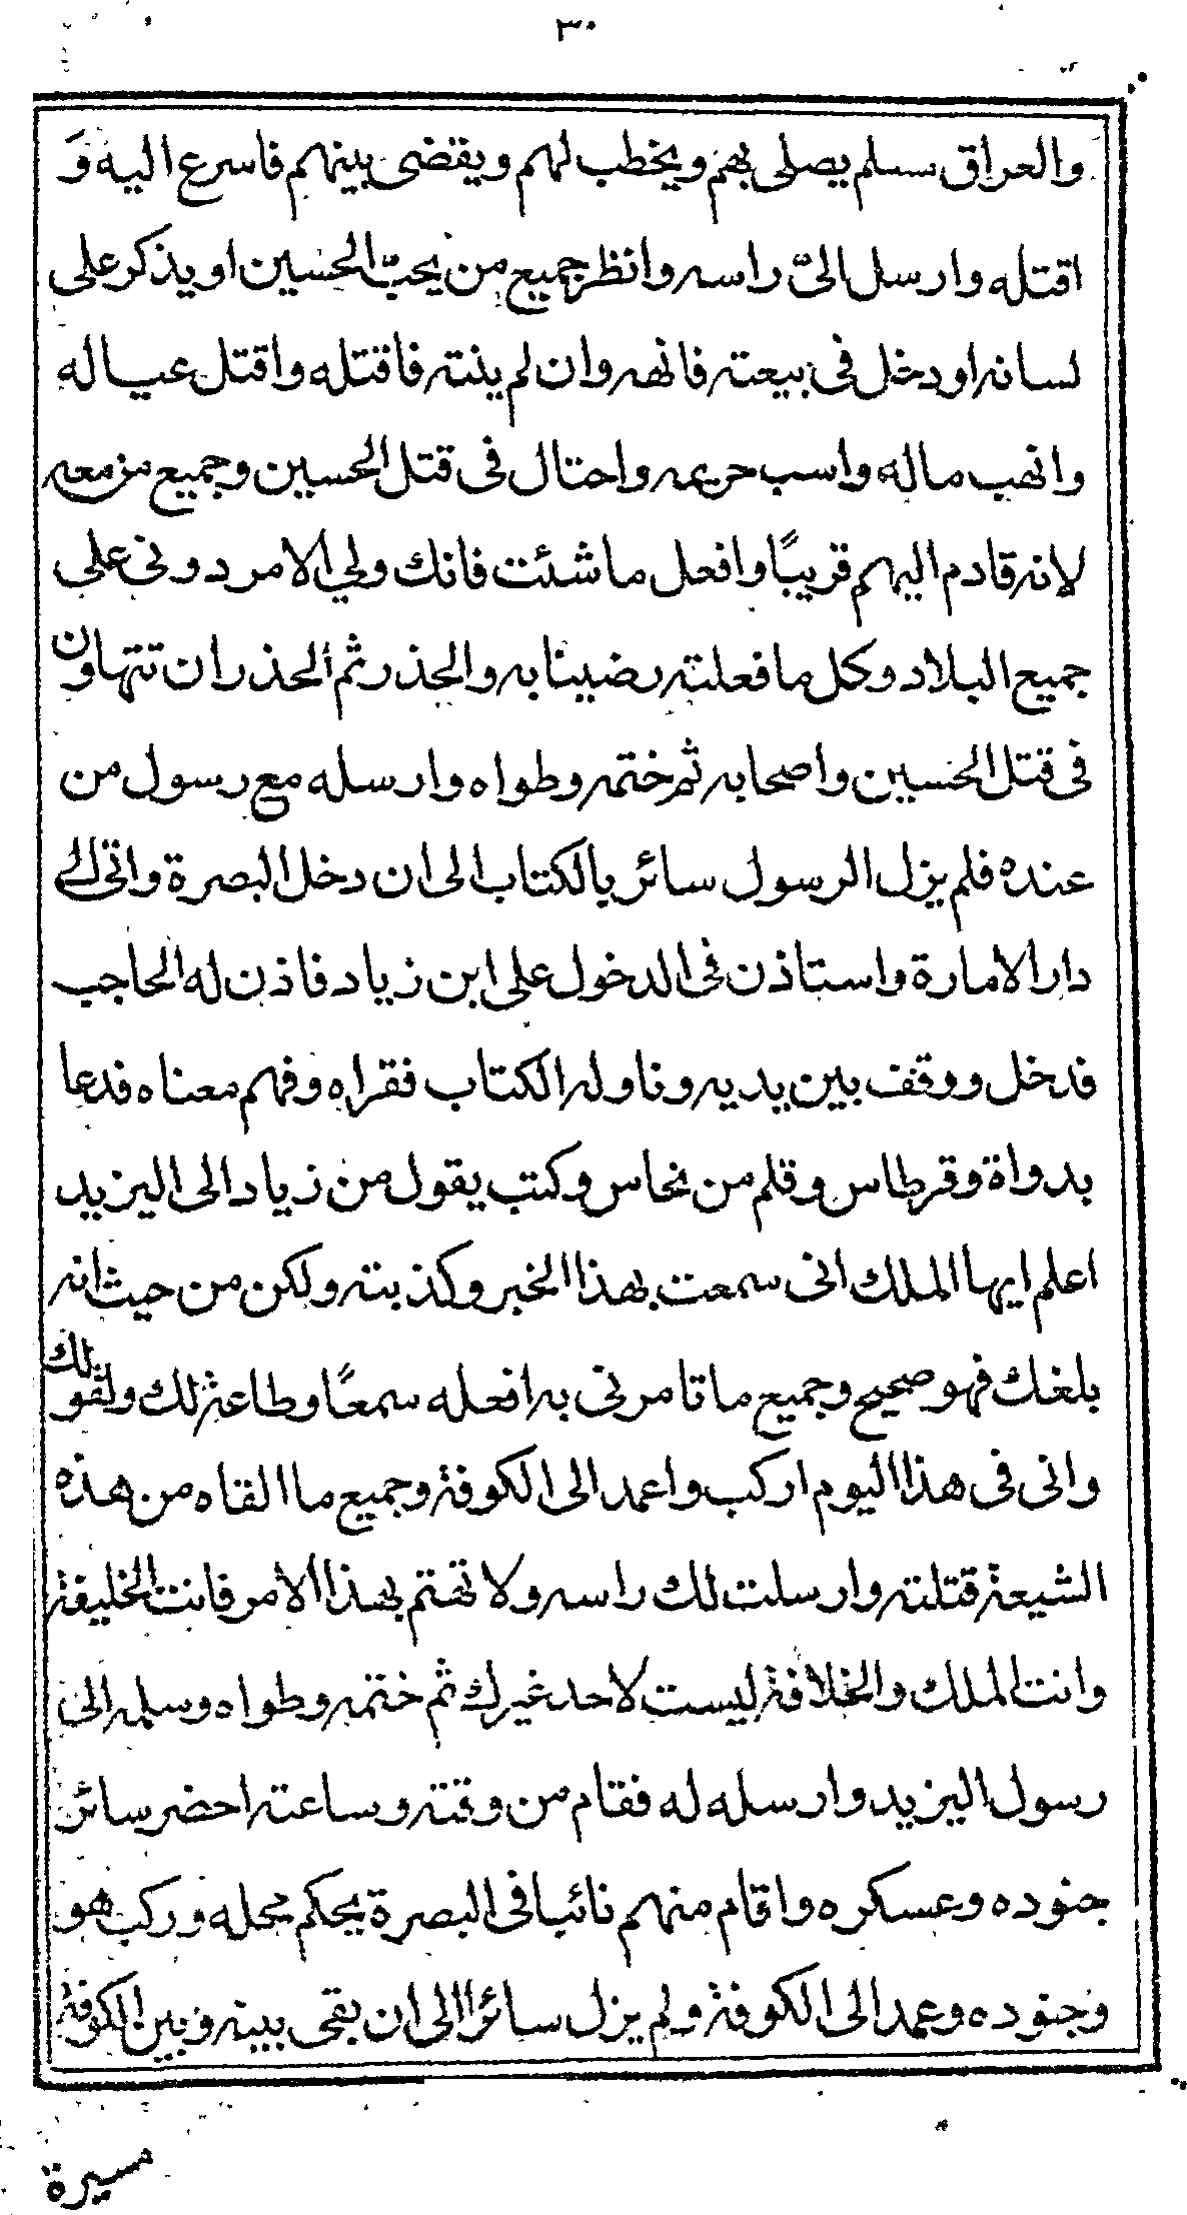 ٣٠
والعراق سسلم يصلى بهم ويخطب لهم ويقضى بينهم فاسرع اليه وَ
اقتله وارسل الىّ راسه وانظر جميع من يحبّ الحسين او يذكر على
لسانه او دخل فى بيعته فانهه وان لم ينته فاقتله واقتل عياله
وانهب ماله واسب حريمه واحتال فى قتل الحسين وجميع من معه
لانه قادم اليهم قريبًا وافعل ما شئت فانك ولي الامر دونى على
جميع البلاد وكل ما فعلته رضينا به والحذر ثم الحذر ان تتهاون
فى قتل الحسين واصحابه ثم ختمه وطواه وارسله مع رسول من
عنده فلم يزل الرسول سائر بالكتاب الى ان دخل البصرة واتى الى
دار الامارة واستاذن فى الدخول على ابن زياد فاذن له الحاجب
فدخل ووقف بين يديه وناوله الكتاب فقراه وفهم معناه فدعا
بدواة وقرطاس وقلم من نحاس وكتب يقول من زياد الى اليزيد
اعلم ايها الملك انى سمعت بهذا الخبر وكذبته ولكن من حيث انه
بلغك فهو صحيح وجميع ما تامرنى به افعله سمعًا وطاعة لك ولقولك
وانى فى هذا اليوم اركب واعمد الى الكوفة وجميع ما القاه من هذه
الشيعة قتلته وارسلت لك راسه ولا تهتم بهذا الامر فانت الخليفة
وانت الملك والخلافة ليست لاحد غيرك ثم ختمه وطواه وسلمه الى
رسول اليزيد وارسله له فقام من وقته وساعته احضر سائر
جنوده وعسكره واقام منهم نائبا فى البصرة يحكم محله وركب هو
وجنوده وعمد الى الكوفة ولم يزل سائرا الى ان بقى بينه وبين الكوفة
مسيرة